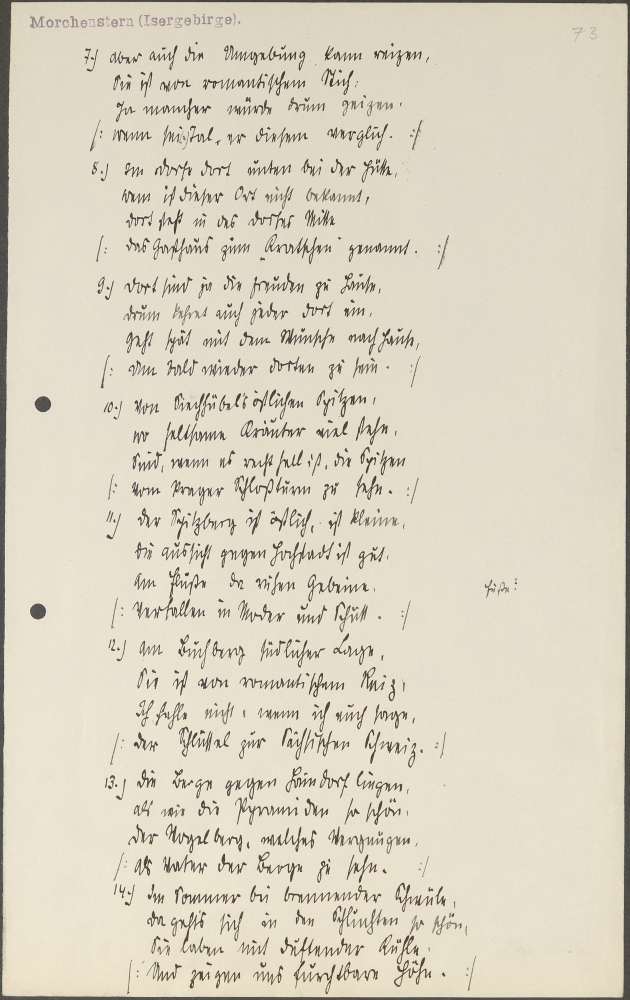 Morchenstern (Isergebirge).
73
7.) aber auch die Umgebung kann reizen,
Sie ist von romantischem Stich:
Ja mancher würde drum geizen.
/: wenn sein Tal, er diesem verglich. :/
8.) Im Dorfe dort unten bei der Hütte,
wem ist dieser Ort nicht bekannt,
dort steht in des Dorfes Mitte
/: das Gasthaus zum "Kratschen" genannt. :/
9.) dort sind ja die Freuden zu Hause,
drum kehret auch jeder dort ein,
Geht spät mit dem Wunsche nach Hause,
/: Um bald wieder dorten zu sein. :/
10.) Von Siechhübels östlichen Spitzen,
wo seltsame Kräuter viel stehn,
Sind, wenn es recht hell ist, die Spitzen
/: vom Prager Schloßturm zu sehn. :/
11.) der Spitzberg ist östlich, ist kleine,
die Aussicht gegen Hochstadt ist gut.
Am Fluße da ruhen Gebeine.
Füße?
/: Verfallen in Moder und Schutt. :/
12.) Am Buchberg südlicher Lage,
Sie ist von romantischem Reiz,
Ich fehle nicht, wenn ich auch sage,
/: der Schlüssel zur Sächsischen Schweiz. :/
13.) die Berge gegen Haindorf liegen,
als wie die Pyramiden so schön.
der Vogelberg, welches Vergnügen,
/: Als Vater der Berge zu sehn. :/
14.) Im Sommer bei brennender Schwüle,
da geht's sich in den Schluchten so schön,
Sie laben mit duftender Kühle.
/: Und zeigen uns furchtbare Höhn. :/